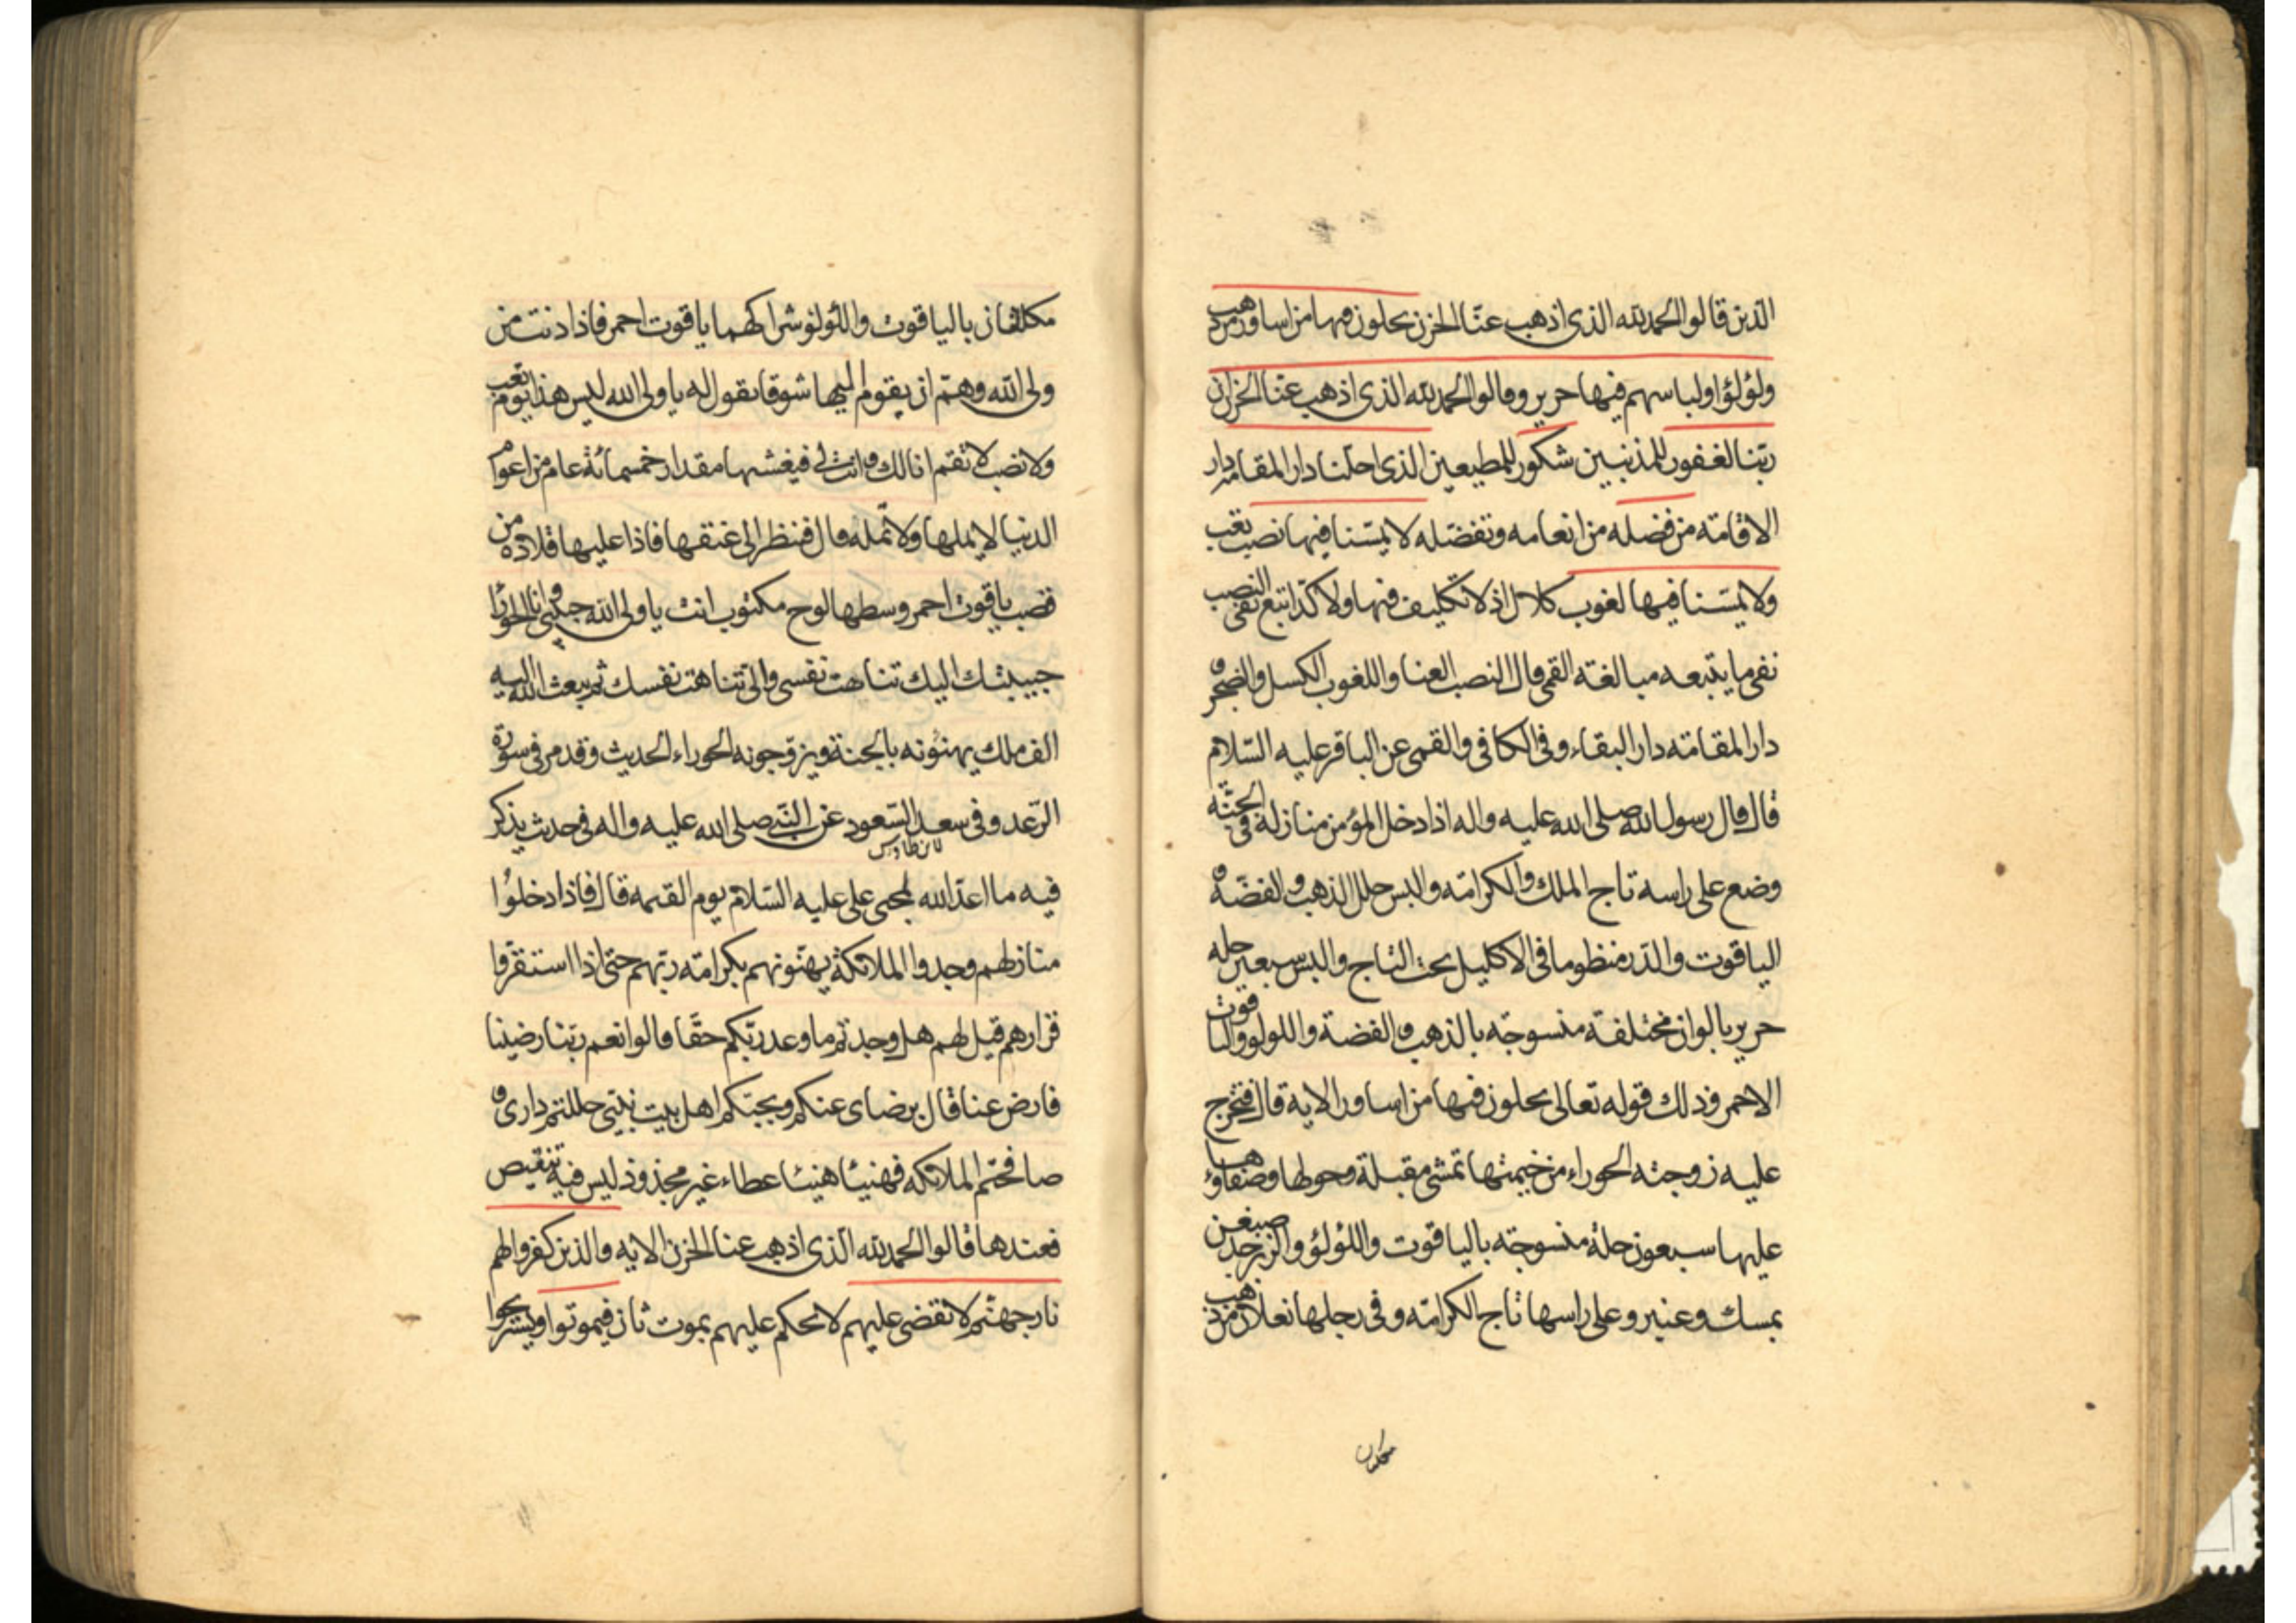 الذين قالوا الحمد لله الذى اذهب عنّا الحزن يحلون فيها من اساور من ذهب
ولؤلؤا ولباسهم فيها حرير وقالوا الحمد لله الذى اذهب عنّا الحزن ان
ربّنا لغفور للمذنبين شكور للمطيعين الذى احلّنا دار المقامه دار
الاقامته من فضله من انعامه وتفضّله لا يمسّنا فيها نصب تعب
ولا يمسّنا فيها لغوب كلال اذ لا تكليف فيها ولا كدّ اتبع نفى النصب
نفى ما يتبعه مبالغته القمى قال النصب العنا واللغوب الكسل والضجر و
دار المقامته دار البقاء وفى الكافى والقمى عن الباقر عليه السّلام
قال قال رسول الله صلى الله عليه واله اذا دخل المؤمن منازله فى الجنّه
وضع على راسه تاج الملك والكرامته والبس حلل الذهب والفضّه و
الياقوت والدّر منظوما فى الاكليل تحت التاج والبس سبعين حله
حرير بالوان مختلفته منسوجته بالذهب والفضة واللولو والياقوت
الاحمر وذلك قوله تعالى يحلون فيها من اساور الاية قال فتخرج
عليه زوجته الحوراء من خيمتها تمشى مقبلة وحولها وصفاؤها
عليها سبعون حلة منسوجته بالياقوت واللؤلؤ والزبرجد صبغن
بمسك وعنبر وعلى راسها تاج الكرامته وفى رجلها نعلان من ذهب
مكللان
مكللتان بالياقوت واللؤلؤ شراكهما ياقوت احمر فاذا دنت من
ولى الله وهمّ ان يقوم اليها شوقا يقول له يا ولى الله ليس هذا يوم تعب
ولا نصب لا تقم انا لك وانت لى فيغشيها مقدار خمسمائة عام من اعوام
الدنيا لا يملها ولا تملّه قال فنظر الى عنقها فاذا عليها قلادة من
قصب ياقوت احمر وسطها لوح مكتوب انت يا ولى الله حبيبى وانا الحورا
حبيبتك اليك تناهت نفسى والىّ تناهت نفسك ثم يبعث الله اليه
الف ملك يهنئونه بالجنة ويزوجونه الحوراء الحديث وقد مر فى سورة
الرّعد وفى سعد السّعود عن النّبى صلى الله عليه واله فى حديث يذكر
لابن طاوس
فيه ما اعدّ الله لمحبى على عليه السّلام يوم القيمه قال فاذا دخلوا
منازلهم وجدوا الملائكة يهنّونهم بكرامته ربّهم حتى اذا استقرّوا
قرارهم قيل لهم هل وجدتم ما وعد ربّكم حقّا قالوا نعم ربّنا رضينا
فارض عنا قال برضاى عنكم وبحبّكم اهل بيت نبيّى حللتم دارى و
صافحتم الملائكه فهنيئا هنيئا عطاء غير مجذوذ ليس فيه تنقيص
فعندها قالوا الحمد لله الّذى اذهب عنا الحزن الايه والذين كفروا لهم
نار جهنّم لا يقضى عليهم لا يحكم عليهم بموت ثان فيموتوا ويستريحوا